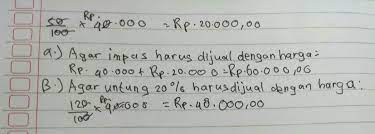 50/100 x Rp. 40.000 = Rp. 20.000,00
a.) Agar impas harus dijual dengan harga:
Rp. 40.000 + Rp. 20.000 = Rp. 60.000,00
B.) Agar untung 20% harus dijual dengan harga:
120/100 x Rp. 40.000 = Rp. 48.000,00